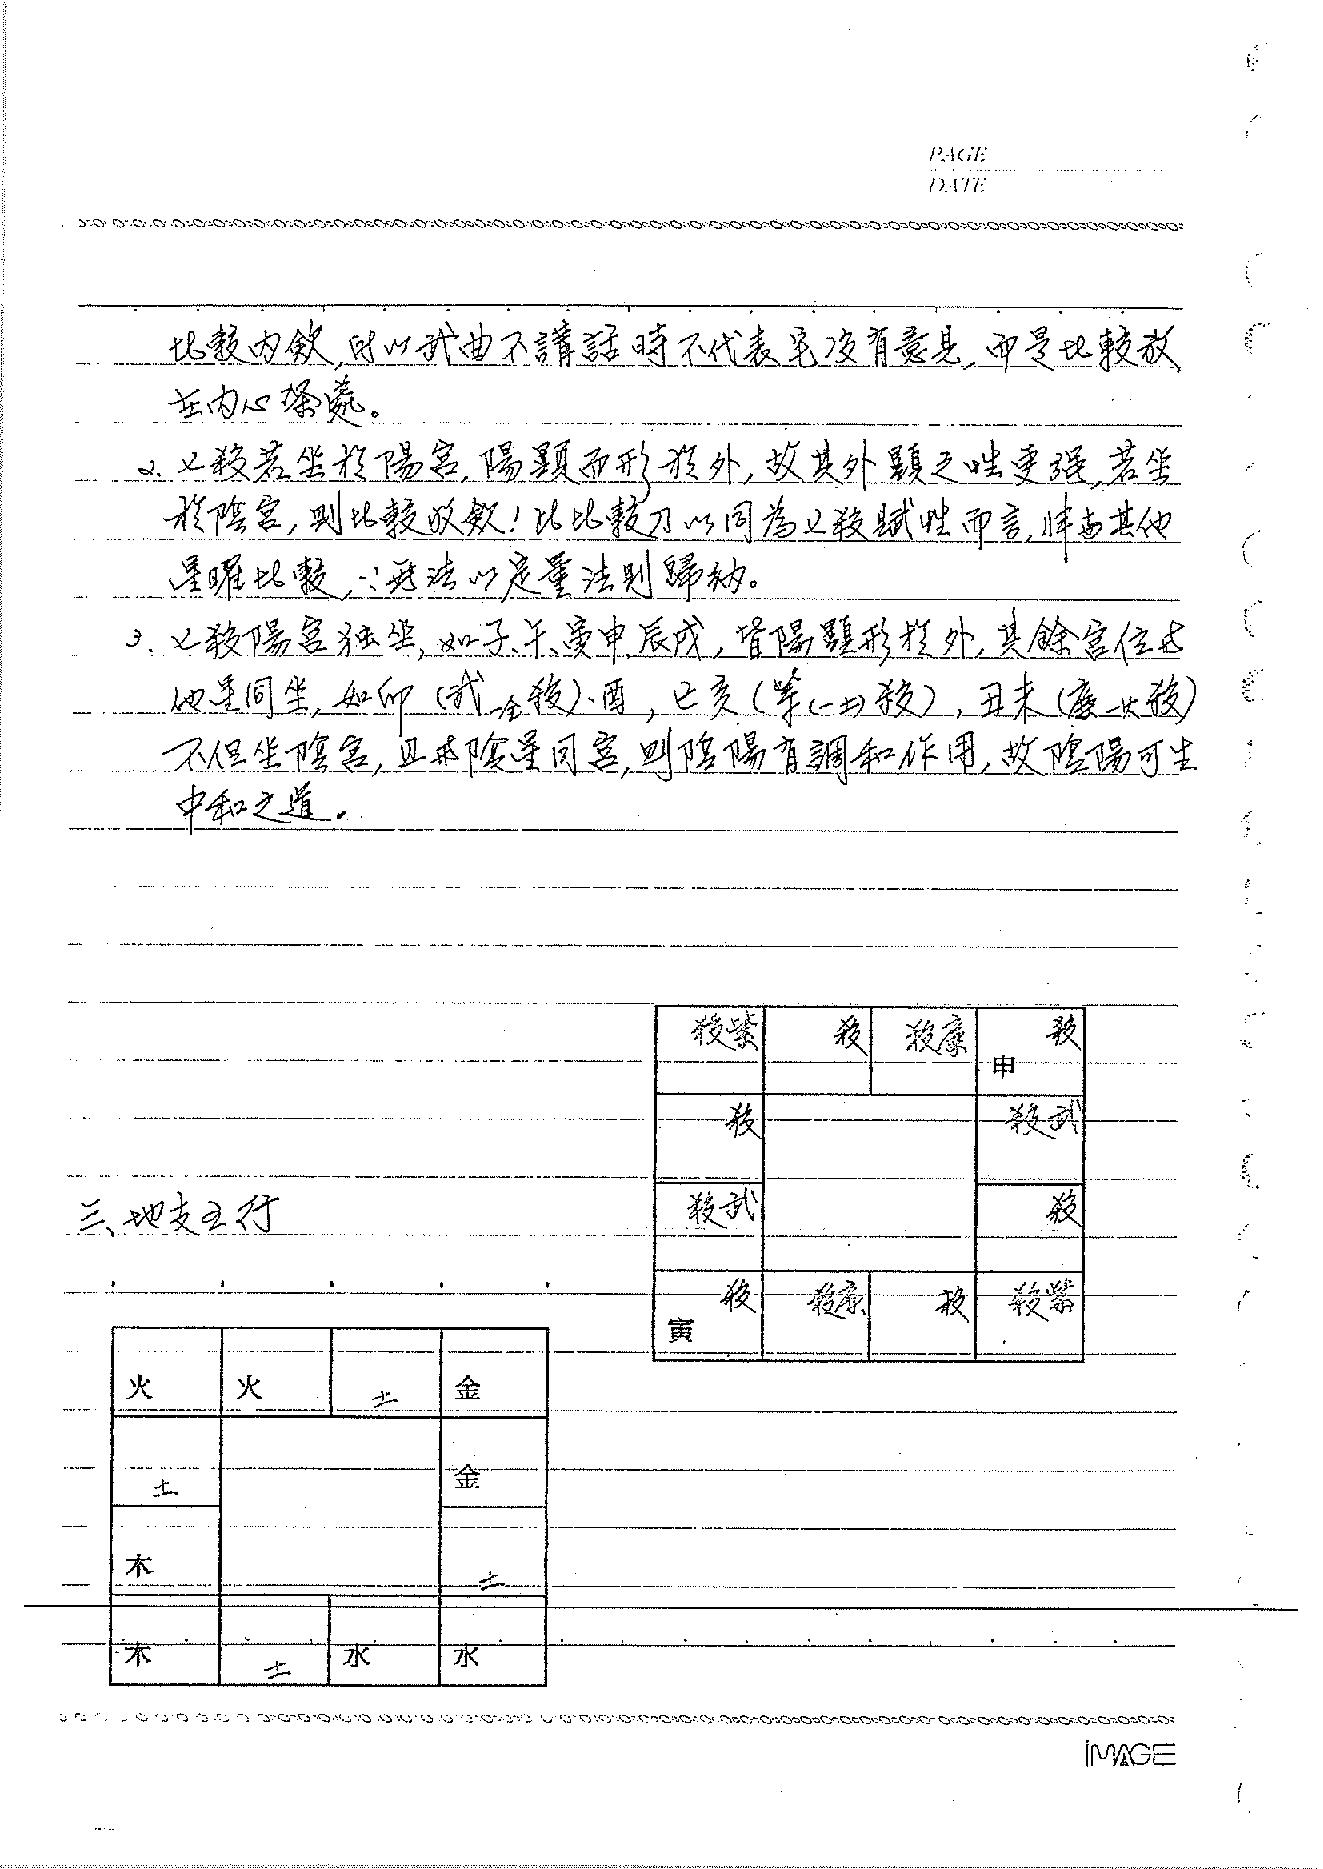 PAGE
DATE
比較內歛,所以武曲不講話時不代表它沒有意見,而是比較放
在內心深處。
2. 七殺若坐於陽宮,陽顯而形於外,故其外顯之性更強,若坐
於陰宮,則比較收歛!此比較乃以同為七殺賦性而言,非與其他
星曜比較,∵無法以定量法則歸納。
3. 七殺陽宮独坐,如子、午、寅申、辰戌,皆陽顯形於外,其餘宮位與
他星同坐,如卯(武殺)、酉,巳亥(紫殺),丑未(廉殺)
不但坐陰宮,且與陰星同宮,則陰陽有調和作用,故陰陽可生
中和之道.
殺紫 殺 殺廉 殺
申
殺 殺武
殺武 殺
殺 殺廉 殺 殺紫
寅
三、地支五行
火 火 土 金
土 金
木 土
木 土 水 水
iMAGE